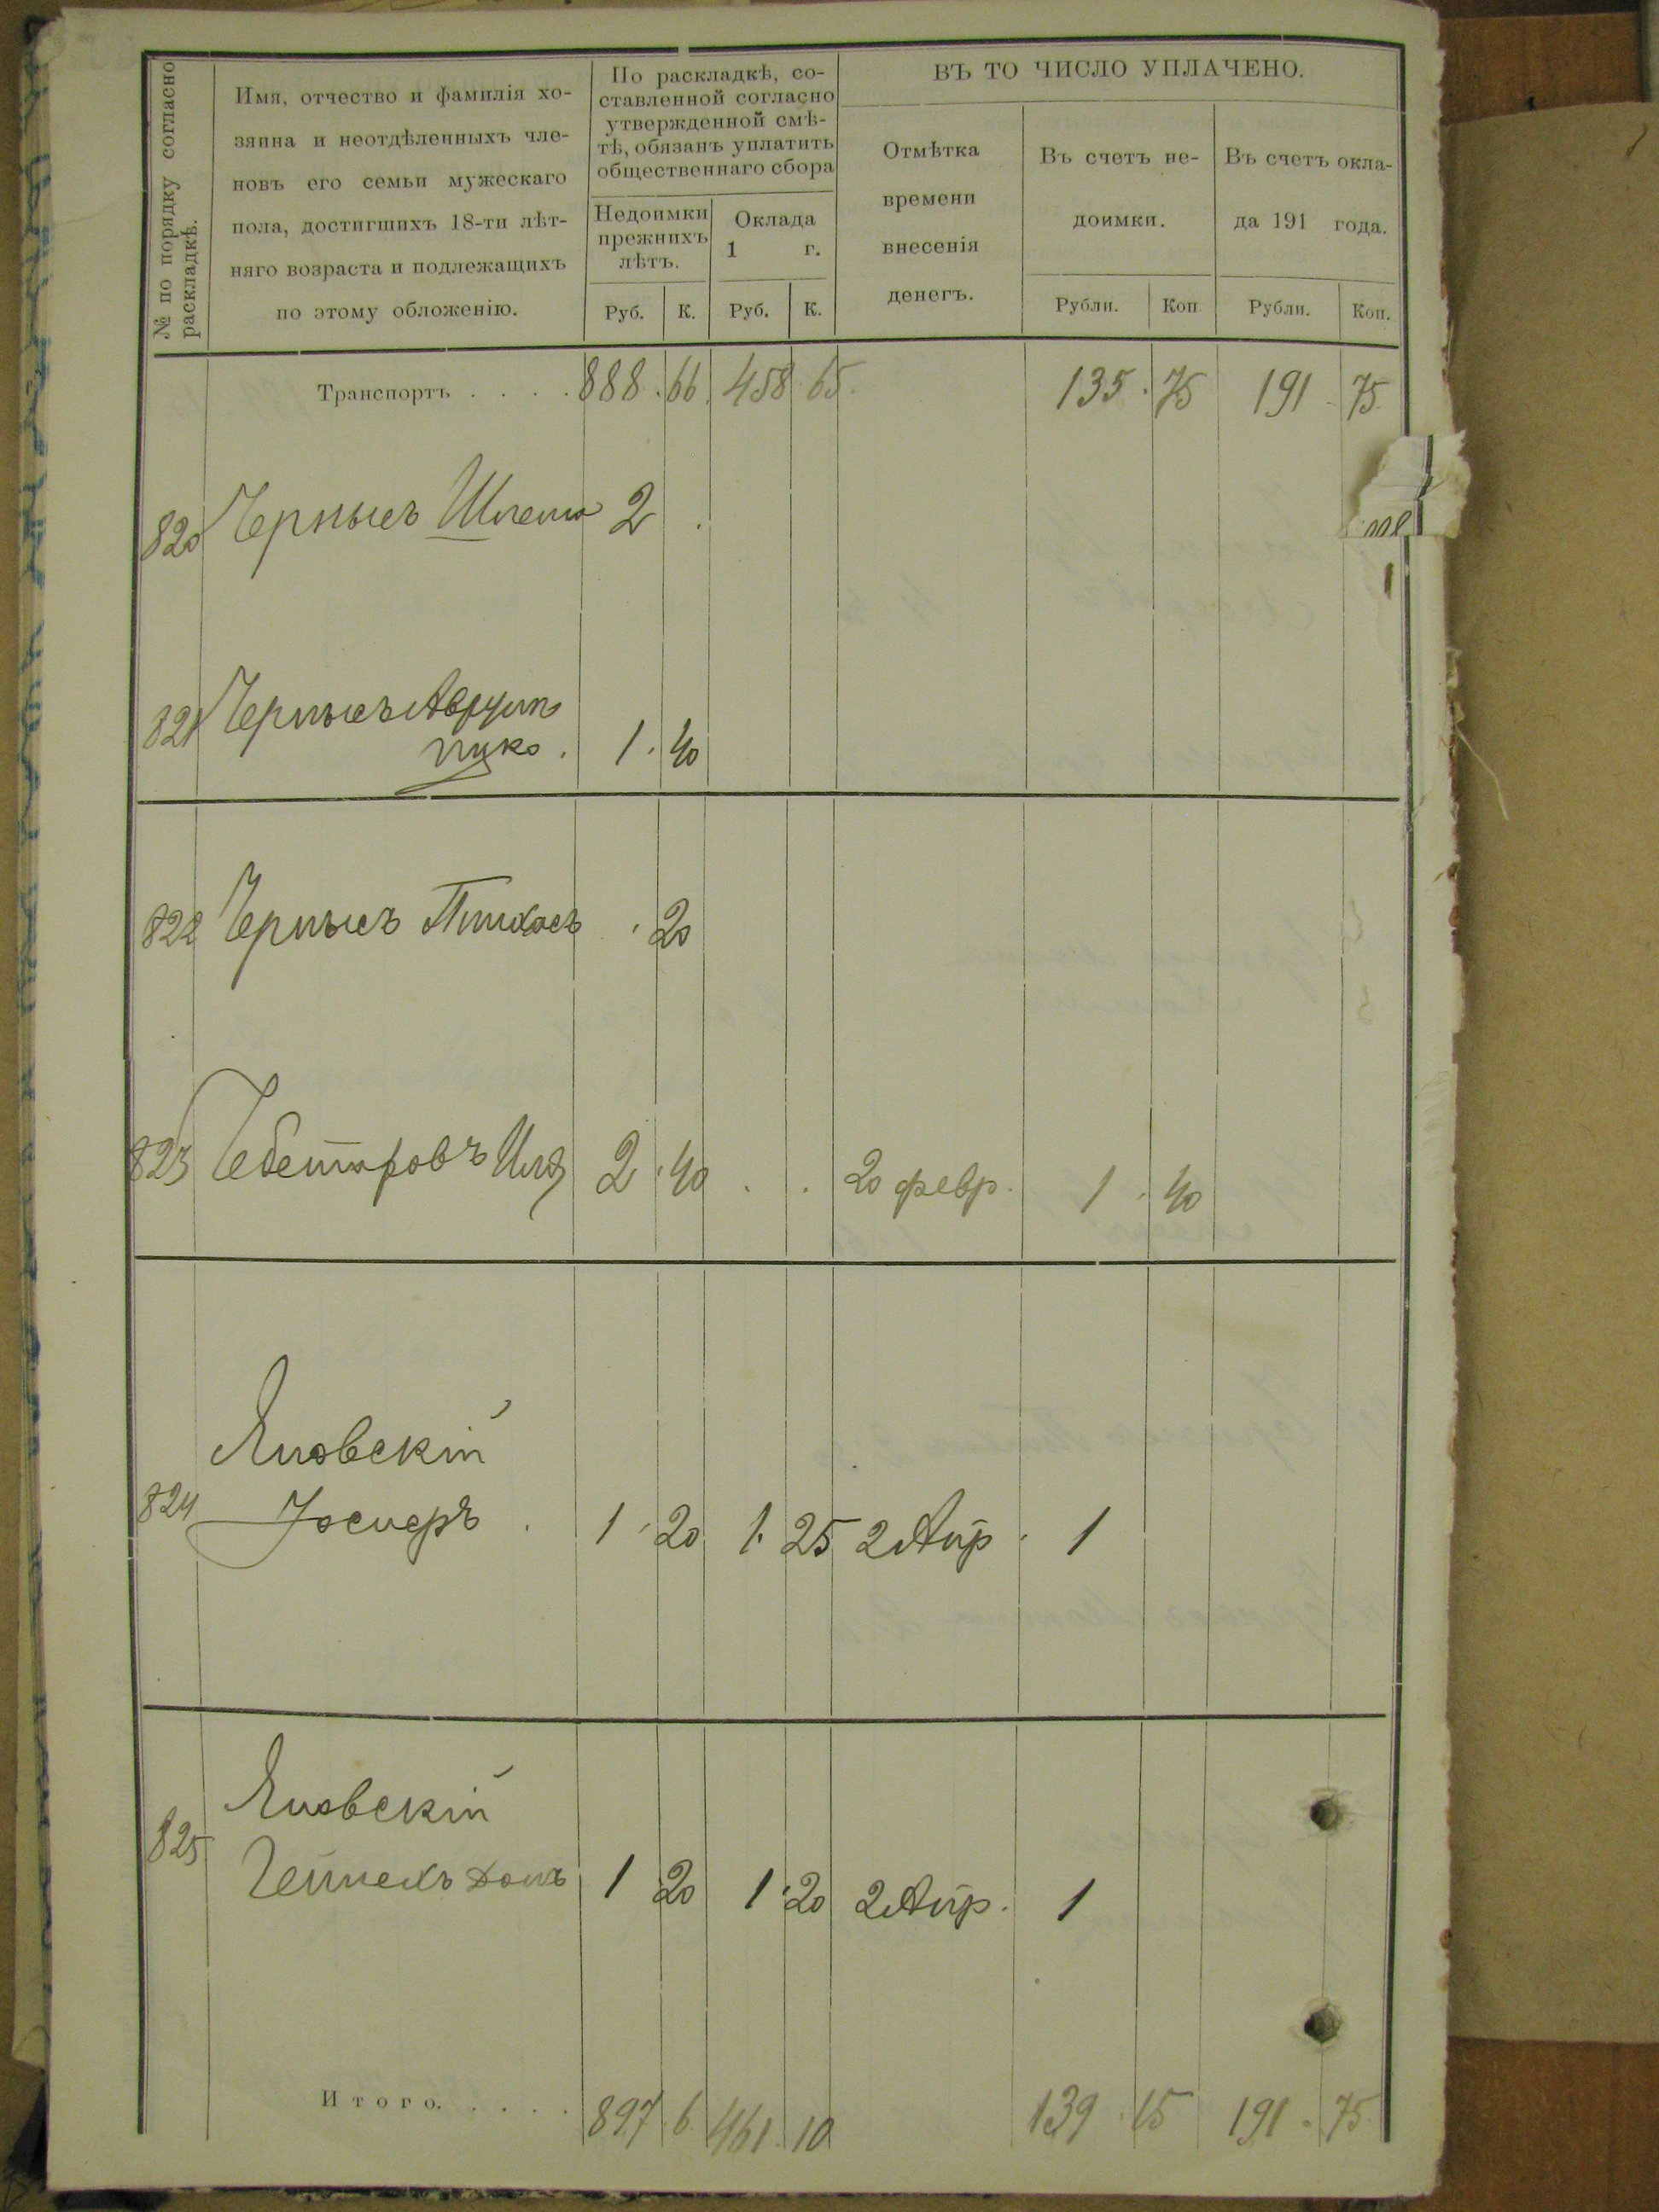 № по порядку согласно
раскладкѣ.
Имя, отчество и фамилія хо-
зяина и неотдѣленныхъ чле-
новъ его семьи мужескаго
пола, достигшихъ 18-ти лѣт-
няго возраста и подлежащихъ
по этому обложенію.
По раскладкѣ, со-
ставленной согласно
утвержденной смѣ-
тѣ, обязанъ уплатить
общественнаго сбора
Недоимки
прежнихъ
лѣтъ.
Оклада
1 г.
Руб. К. Руб. К.
ВЪ ТО ЧИСЛО УПЛАЧЕНО.
Отмѣтка
времени
внесенія
денегъ.
Въ счетъ не-
доимки.
Въ счетъ окла-
да 191 года.
Рубли. Коп. Рубли. Коп.
Транспортъ . . . . 888 . 66 458 65 135 . 75 191 . 75
820 Черныхъ 2 .
821 Черныхъ
1 . 40
822 Черныхъ . 20
823 2 . 40 . . 20 февр. 1 . 40
Яновскій
824 1 20 1 25 2 Апр . 1
Яновскій
825 1 20 1 20 2 Апр. 1
Итого. . . . . 897 . 6 461 . 10 139 . 15 191 . 75